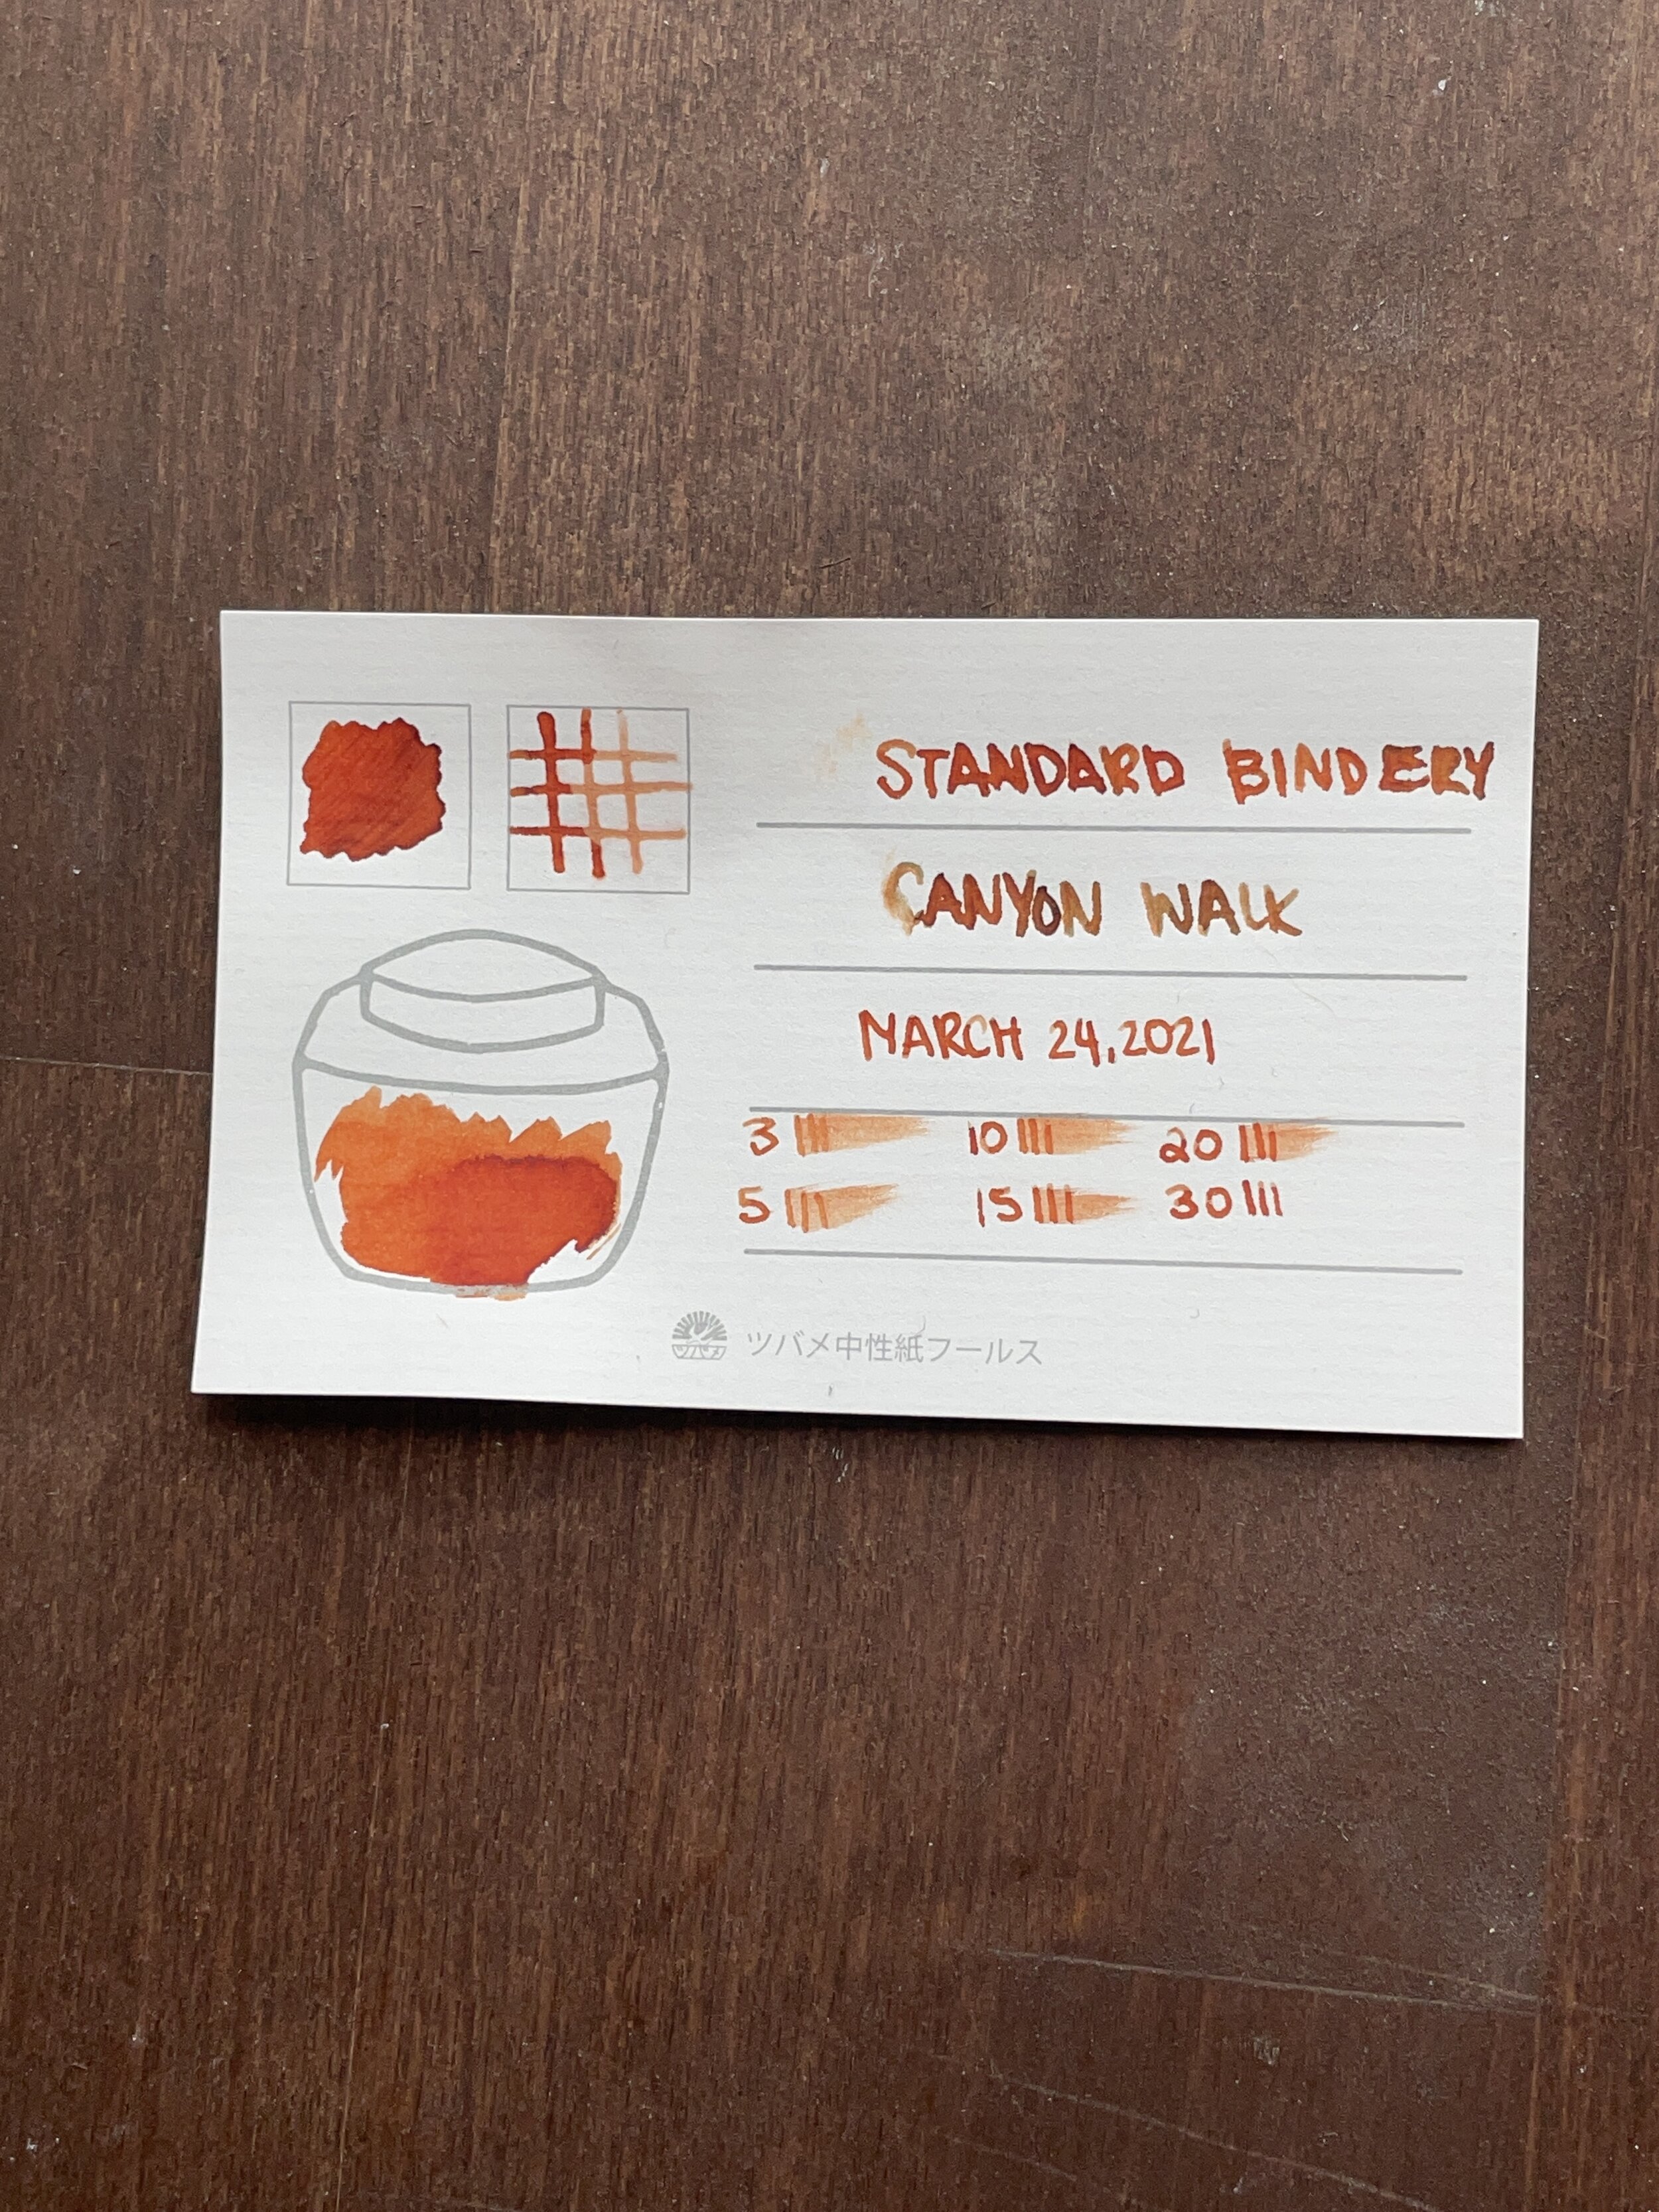 STANDARD BINDERY
CANYON WALK
MARCH 24, 2021
3 10 20
5 15 30
ツバメ ツバメ中性紙フールス